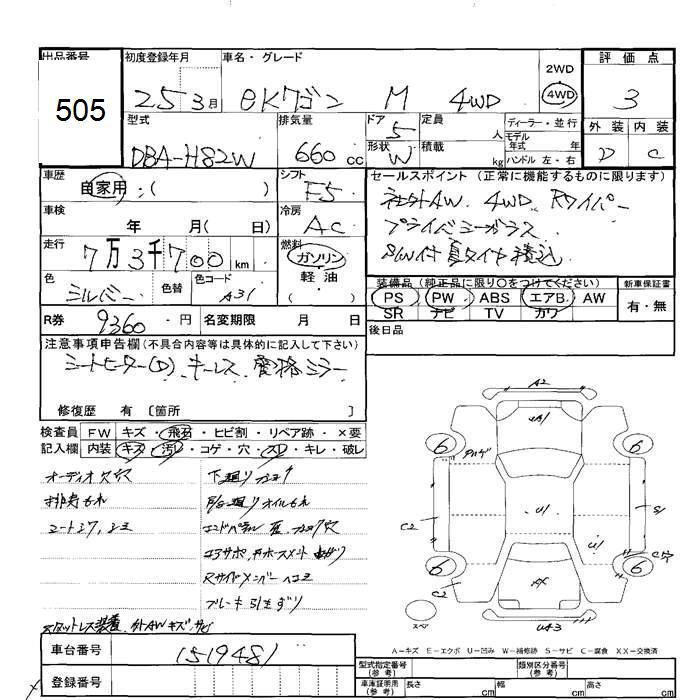 出品番号 初度登録年月 車名・グレード 評価点
505
25 3月 eKワゴン M 4WD
2WD
4WD
3
型式 排気量 ドア 定員 人 ディーラー・並行
外装 内装
モデル年式 年
DBA-H82W 660cc 5
形状 W 積載 kg ハンドル 左・右
D C
車歴 自家用:( )
シフト F5
セールスポイント (正常に機能するものに限ります)
社外AW 4WD Rワイパー
プライバシーガラス
S/W付 夏タイヤ積込
車検 年 月( 日)
冷房 AC
走行 7万3千700km
燃料 ガソリン
軽油
( )
色 シルバー 色替 色コード A31
装備品 (純正品に限り○をつけてください) 新車保証書
PS PW ABS エアB. AW
SR ナビ TV カワ
有・無
R券 9360-円 名変期限 月 日
後日品
注意事項申告欄(不具合内容等は具体的に記入して下さい)
シートヒーター(D) キーレス 電格ミラー
修復歴 有 〔箇所 〕
検査員 FW キズ・飛石・ヒビ割・リペア跡・×要
記入欄 内装 キズ・汚レ・コゲ・穴・スレ・キレ・破レ
オーディオ欠穴
下廻りサビ
排キもれ
オイルもれ
シートシワ,シミ
Rサイドメンバーヘコミ
ブレーキ引きずり
スタットレス装着 外AWキズ,サビ
A2
A1
6 6
U1
S1
C2
U1
6 6
C2
XX
スペア
UA3
A-キズ E-エクボ U-凹み W-補修跡 S-サビ C-腐食 XX-交換済
車台番号 1519481
型式指定番号(参考) 類別区分番号(参考)
登録番号
車庫証明用(参考) 長さ cm 幅 cm 高さ cm